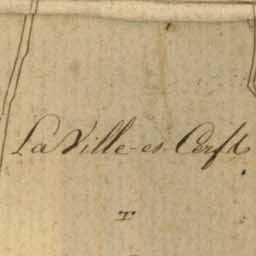 La Ville-es-Cerfs